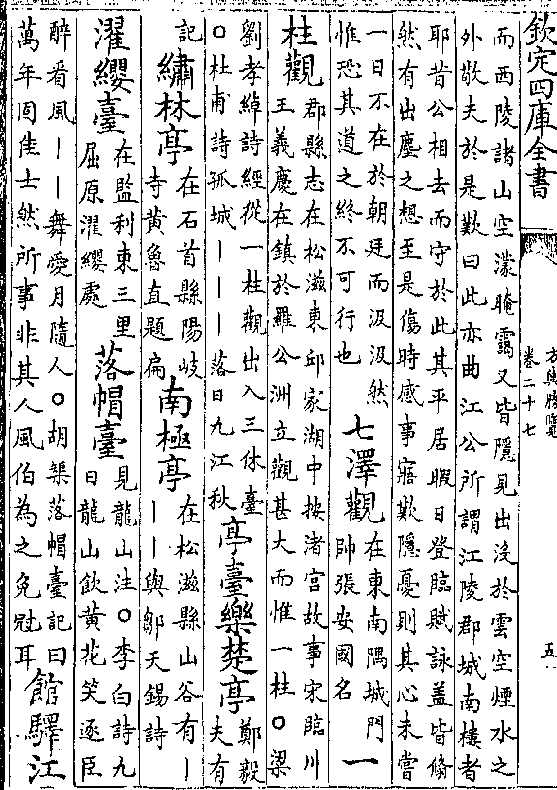 欽定四庫全書
方輿勝覽
卷二十七
五
而西陵諸山空濛晻靄又皆隱見出沒於雲空煙水之
外敬夫於是歎曰此亦曲江公所謂江陵郡城南樓者
耶昔公相去而守於此其平居暇日登臨賦詠蓋皆翛
然有出塵之想至是傷時感事寤歎隱憂則其心未嘗
一日不在於朝廷而汲汲然
惟恐其道之終不可行也
七澤觀
在東南隅城門
帥張安國名
一
柱觀
郡縣志在松滋東邱家湖中按渚宫故事宋臨川
王義慶在鎮於羅公洲立觀甚大而惟一柱○梁
劉孝綽詩經從一柱觀出入三休臺
○杜甫詩孤城｜｜｜落日九江秋
亭臺樂楚亭
鄭毅
夫有
記
繡林亭
在石首縣陽岐
寺黄魯直題扁
南極亭
在松滋縣山谷有｜
｜｜與鄒天錫詩
濯纓臺
在監利東三里
屈原濯纓處
落帽臺
見龍山注○李白詩九
日龍山飲黄花笑逐臣
醉看風｜｜舞愛月隨人○胡榘落帽臺記曰
萬年固佳士然所事非其人風伯為之免冠耳
館驛江